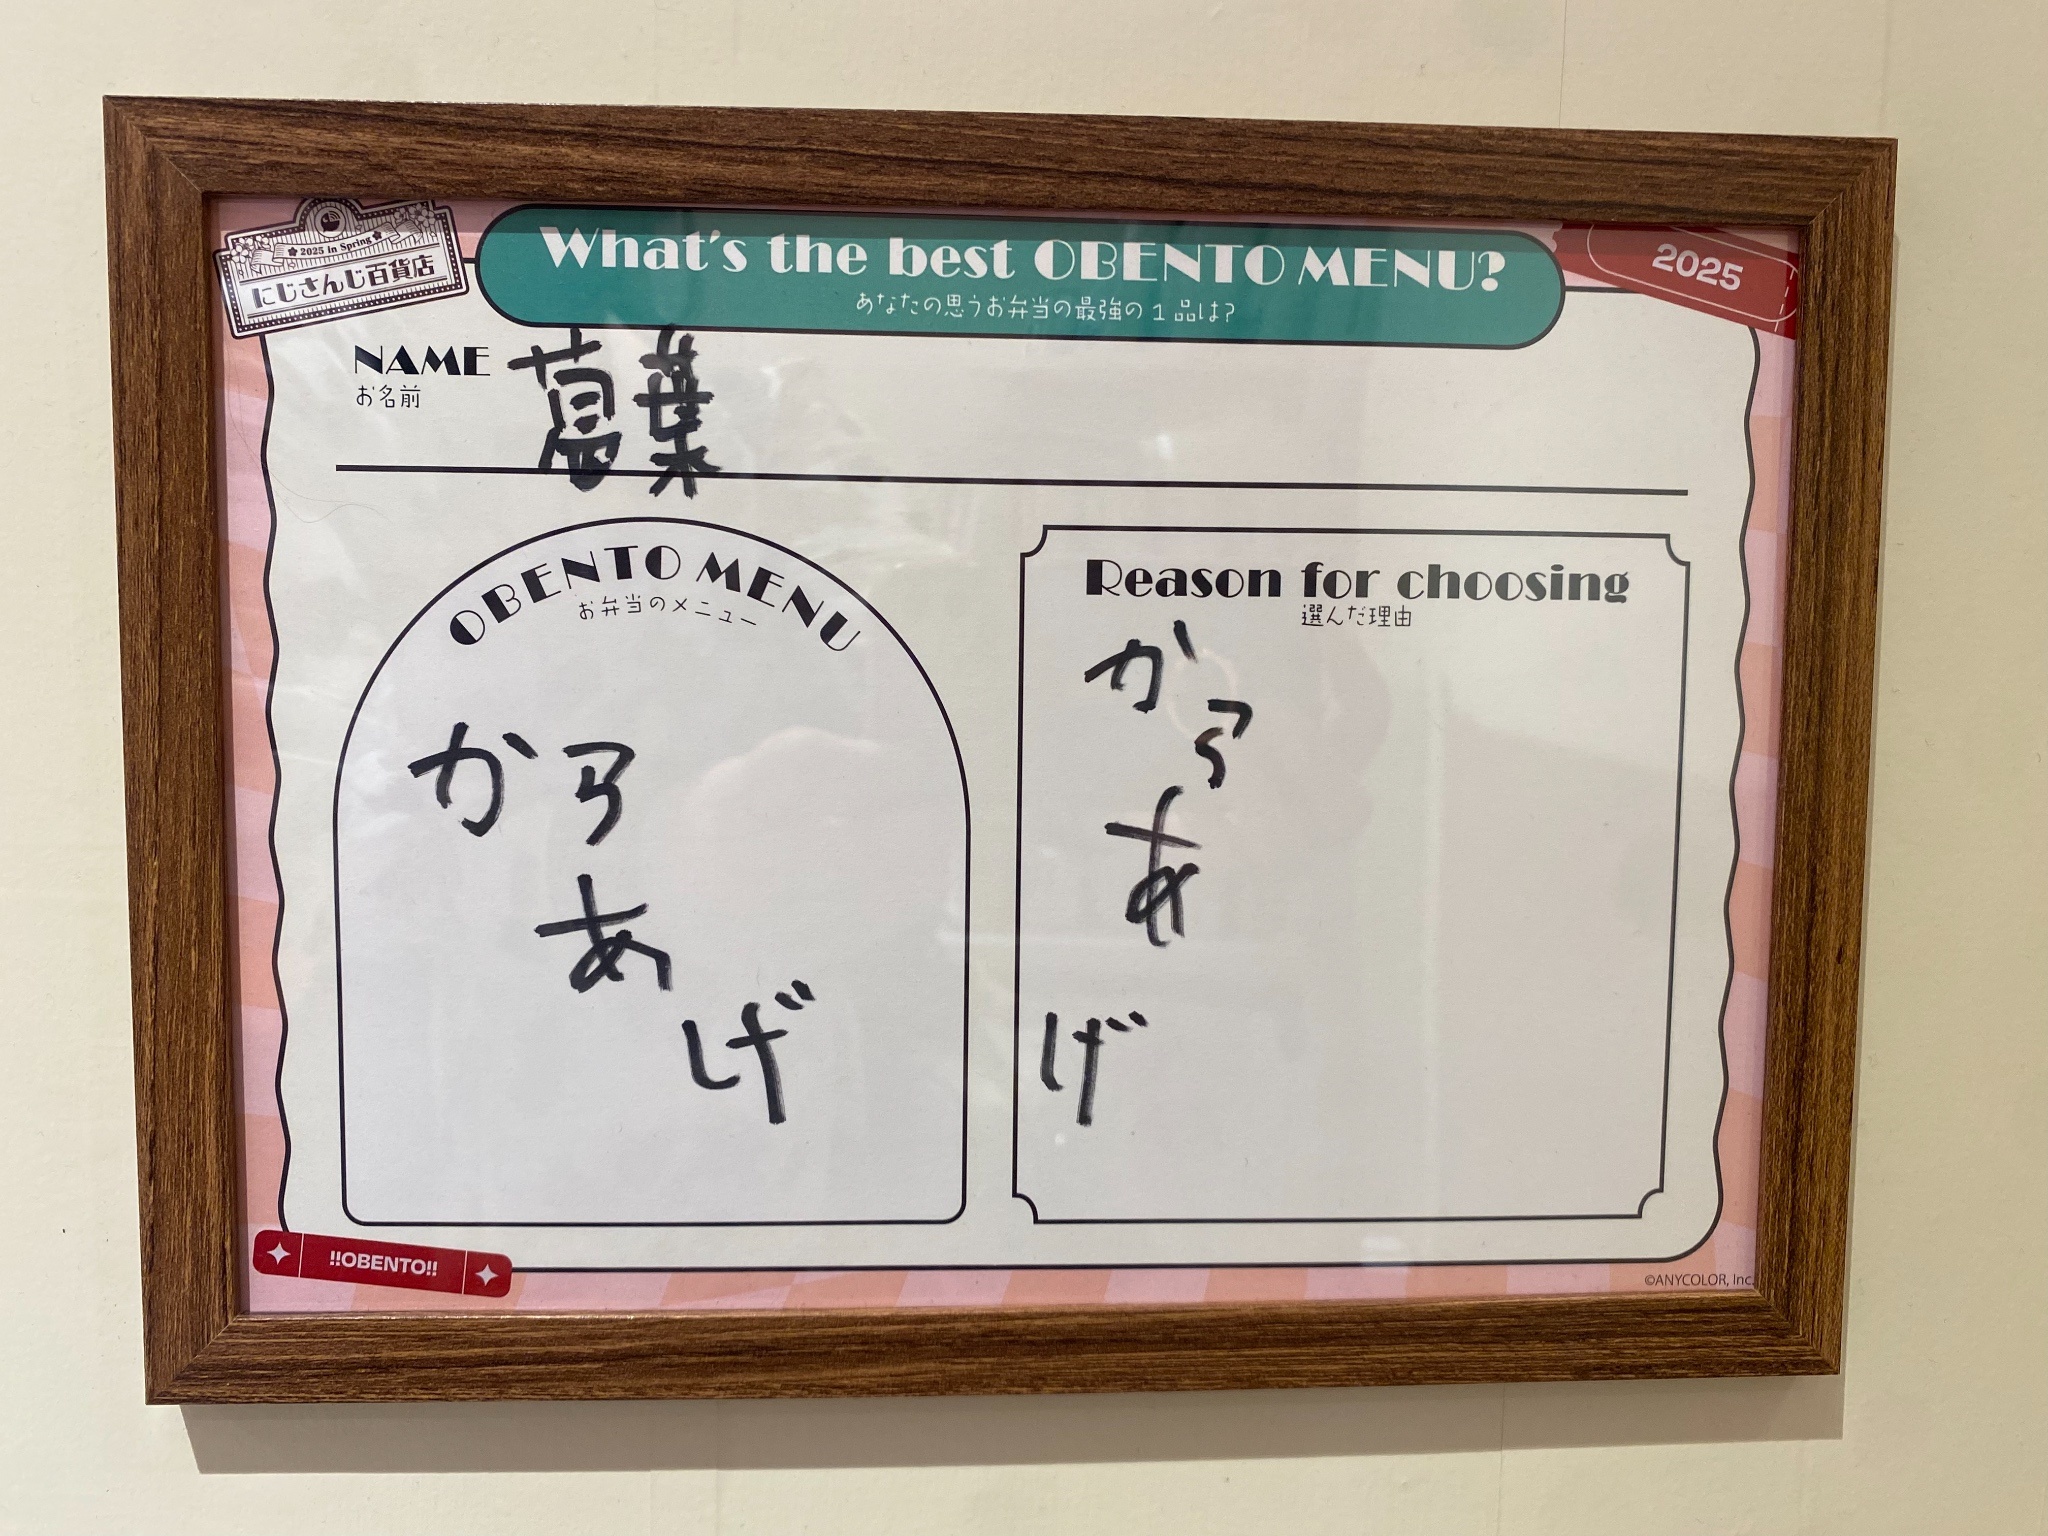 2025 in Spring
にじさんじ百貨店
What's the best OBENTO MENU?
あなたの思うお弁当の最強の1品は?
2025
NAME
お名前
葛葉
OBENTO MENU
お弁当のメニュー
からあげ
Reason for choosing
選んだ理由
か
ら
あ
げ
!!OBENTO!!
©ANYCOLOR, Inc.